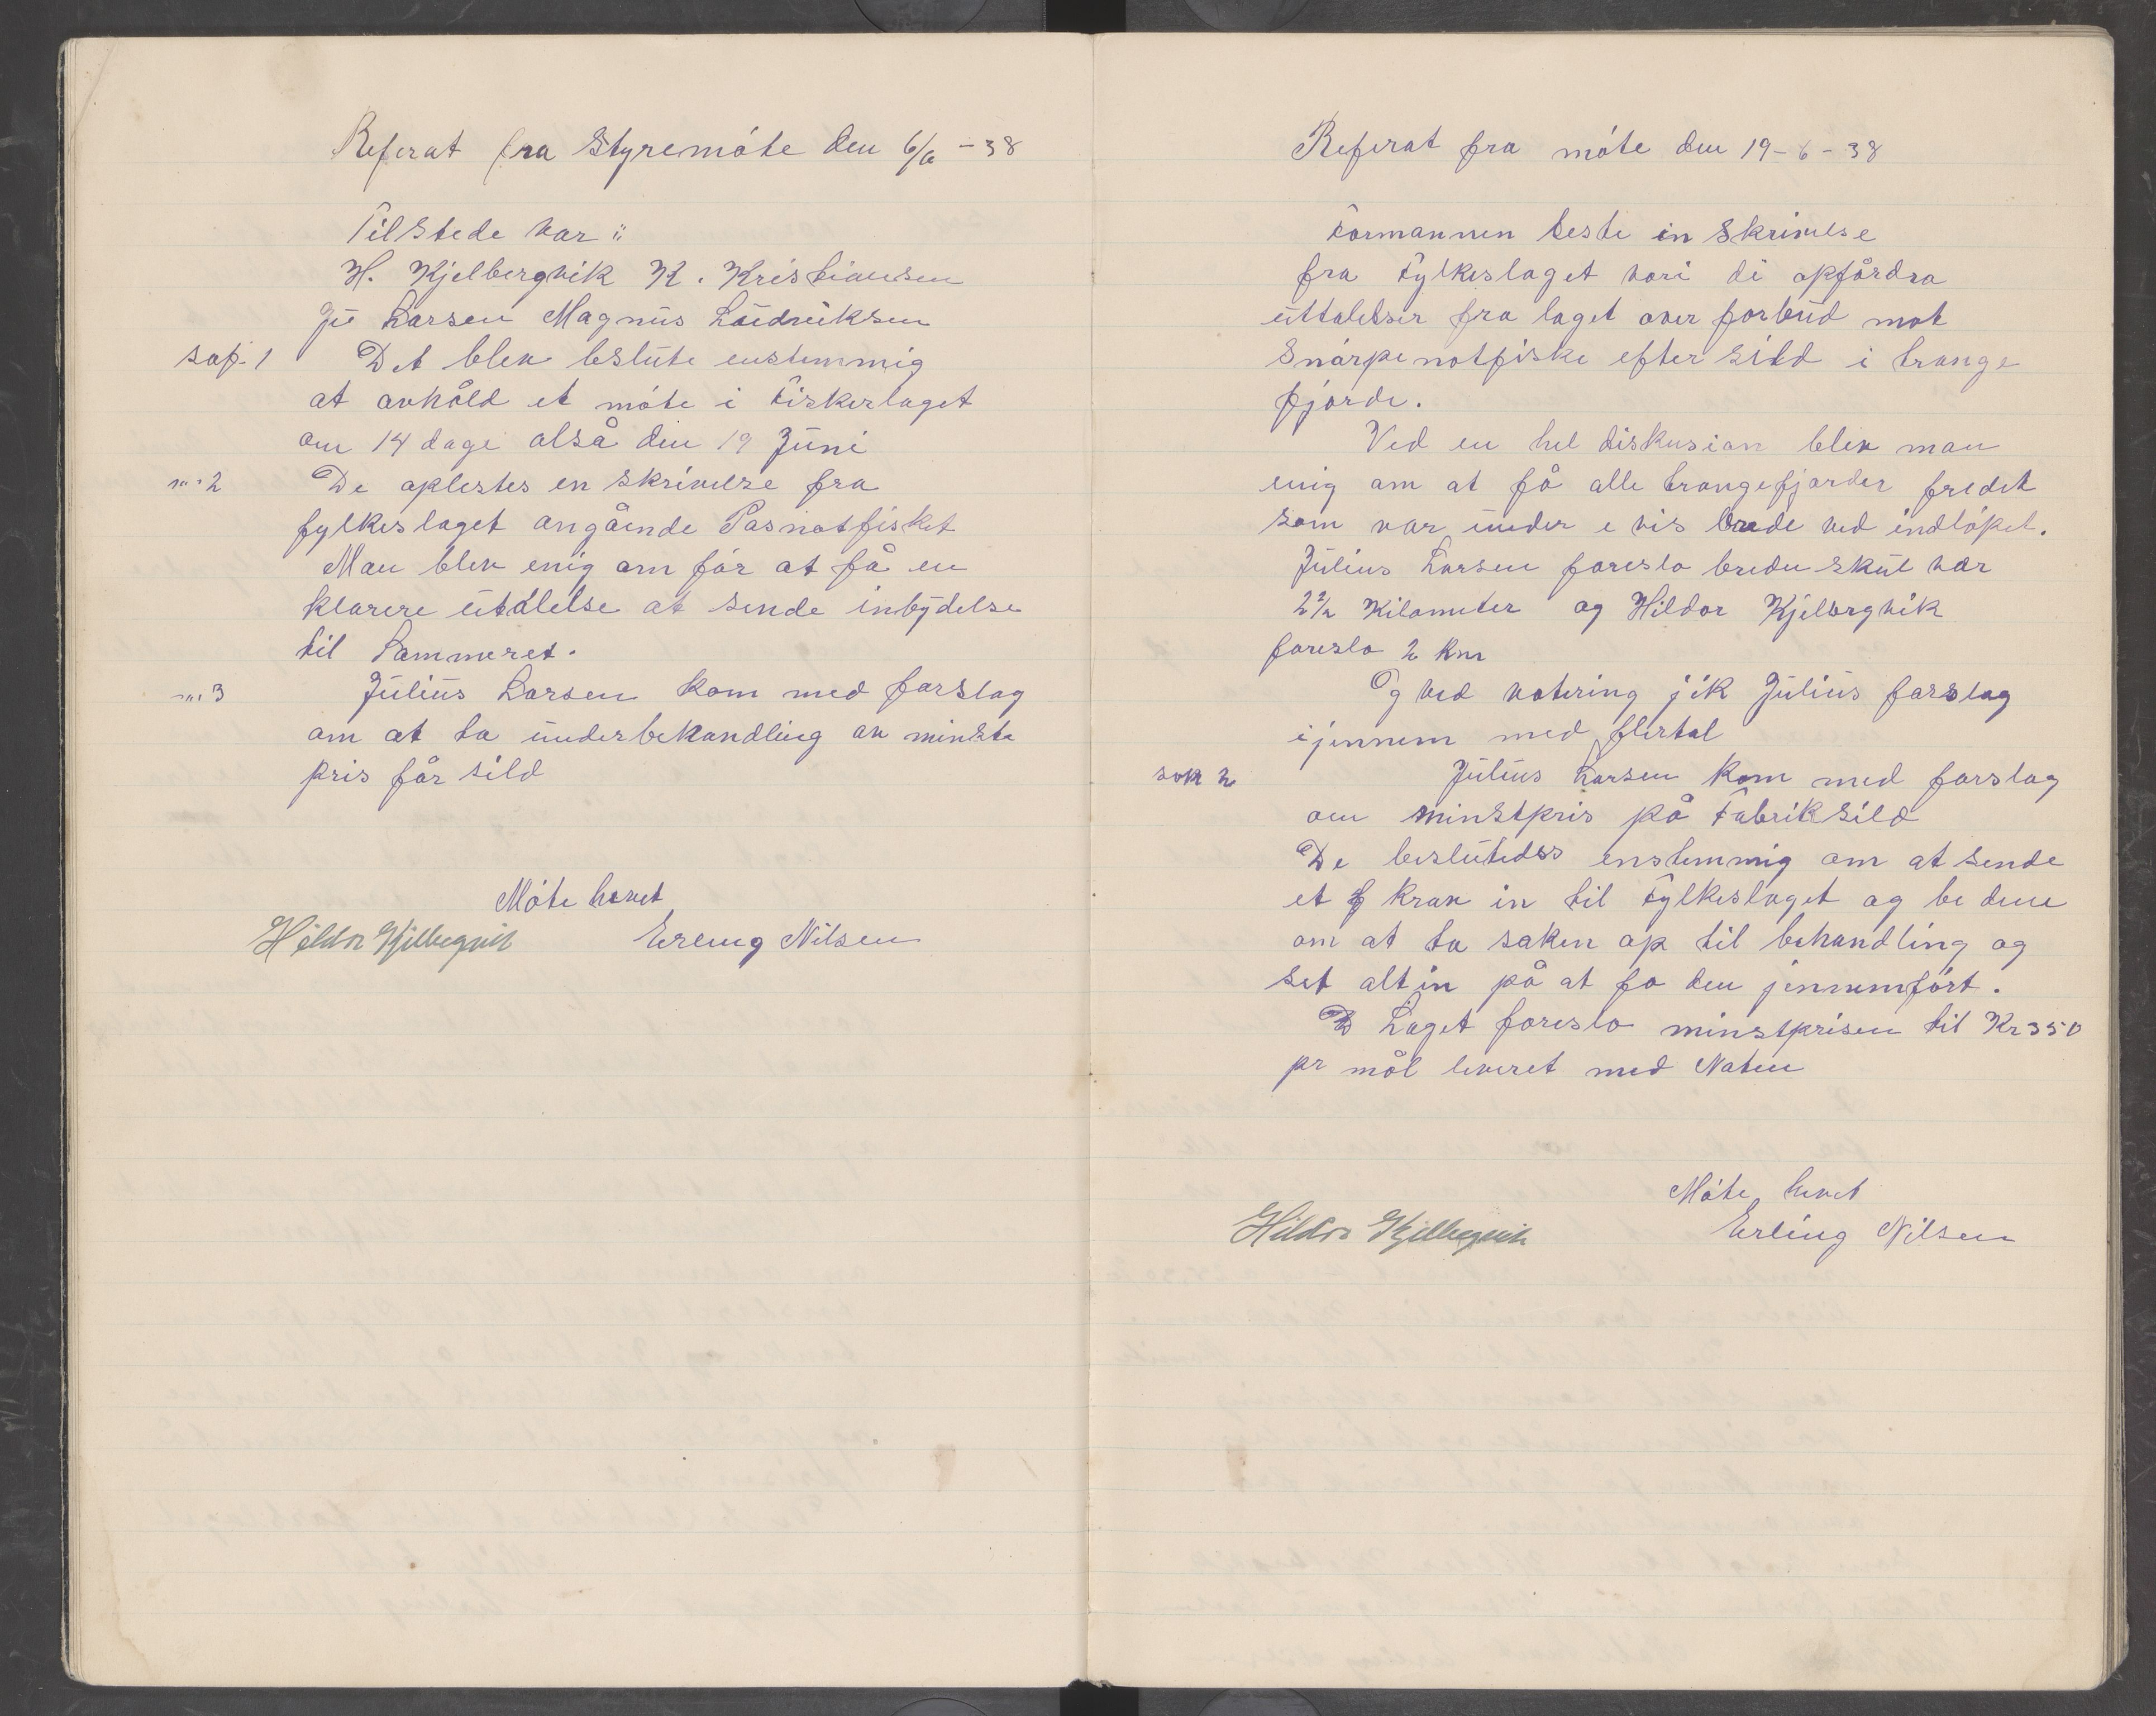 Referat fra Styremóte den 6/6 - 38
Tilstede var :
H. Kjelbergvik K. Kristiansen
Ju Larsen Magnus Ludriksen
sap. 1 Det blev beslute enstemmig
at avhåld et móte i Fiskerlaget
om 14 dage alså den 19 Juni
2 De oplestes en skrivelse fra
fylkeslaget angående Posnotfisket
Man blev enig om får at få en
klarere utalelse at sende inbydelse
til Lammeret.
3 Julius Larsen kom med forslag
om at ta underbehandling av minste
pris får sild
Móte hevet
Hildor Kjelbergvik Erling Nilsen
Referat fra móte den 19-6-38
Formannen leste in skrivelse
fra Fylkeslaget vori di opfårdra
uttalelser fra laget over forbud mot
Snórpenotfiske efter sild i trange
fjorde.
Ved en hel diskusion blev man
enig om at få alle trangefjorder fredet
som var under e vis brede ved indlópet.
Julius Larsen foreslo breden skul vær
2½ Kilometer og Hildor Kjelbergvik
foreslo 2 km
Og ved votering jik Julius forslag
ijennem med flertal
sak 2 Julius Larsen kom med forslag
om minstpris på Fabriksild
De beslutedes enstemmig om at sende
et krav in til Fylkeslaget og be dem
om at ta saken op til behandling og
set alt in på at få den jennemfórt.
Laget foreslo minstprisen til Kr 350
pr mål leveret med Noten
Móte hevet
Hildor Kjelbergvik Erling Nilsen